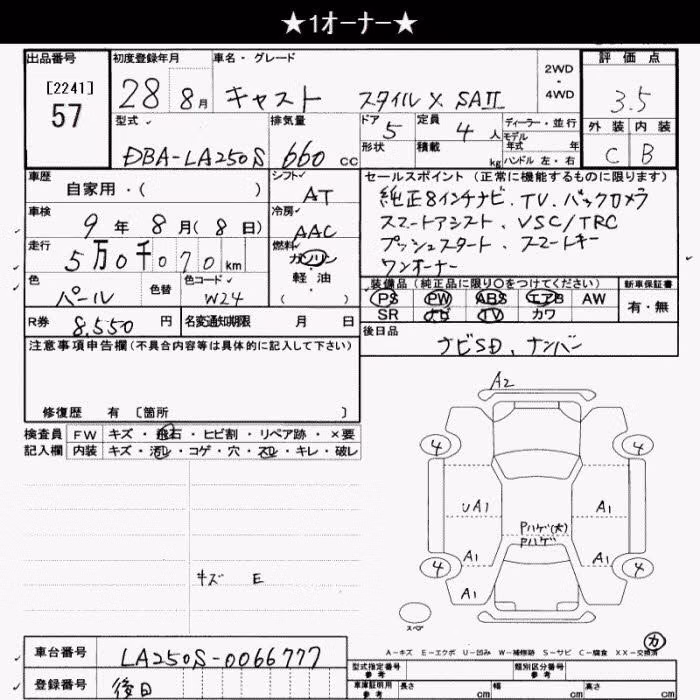 ★1オーナー★
出品番号 初度登録年月 車名・グレード 2WD・4WD 評価点
[2241]
57
28 8月 キャスト スタイル X SAⅡ 3.5
型式 排気量 ドア 定員 ディーラー・並行 外装 内装
DBA-LA250S 660 cc 5 4人 モデル年式 年 C B
形状 積載 kg ハンドル 左・右
車歴 自家用・( ) シフト AT
セールスポイント(正常に機能するものに限ります)
純正8インチナビ、TV、バックカメラ
スマートアシスト、VSC/TRC
プッシュスタート、スマートキー
ワンオーナー
車検 9年 8月(8日) 冷房 AAC
走行 5万0千070km 燃料 ガソリン・軽油・( )
色 パール 色替 色コード W24
装備品(純正品に限り○をつけてください) 新車保証書
PS PW ABS エアB AW 有・無
SR ナビ TV カワ
R券 8,550円 名変通知期限 月 日
後日品
ナビSD、ナンバー
注意事項申告欄(不具合内容等は具体的に記入して下さい)
修復歴 有 [箇所 ]
検査員 FW キズ・飛石・ヒビ割・リペア跡・×要
記入欄 内装 キズ・汚レ・コゲ・穴・スレ・キレ・破レ
A2
4 4
UA1 A1
Pハゲ(大)
Pハゲ
A1 A1
4 4
A1
キズ E
スペア
カ
A-キズ E-エクボ U-凹み W-補修跡 S-サビ C-腐食 XX-交換済
車台番号 LA250S-0066777
型式指定番号 参考 類別区分番号 参考
登録番号 後日
車庫証明用 参考 長さ cm 幅 cm 高さ cm